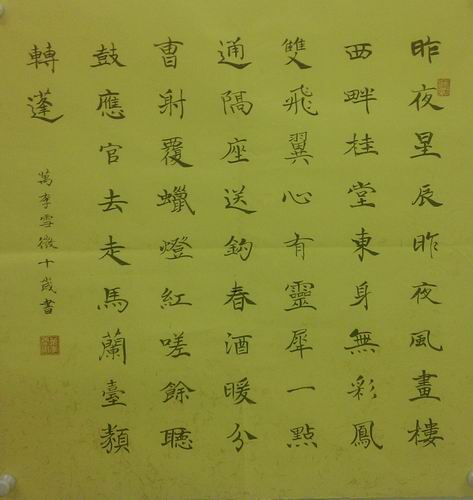 昨夜星辰昨夜風畫樓
西畔桂堂東身無彩鳳
雙飛翼心有靈犀一點
通隔座送鈎春酒暖分
曹射覆蠟燈紅嗟餘聽
鼓應官去走馬蘭臺類
轉蓬
萬李雪微十歲書